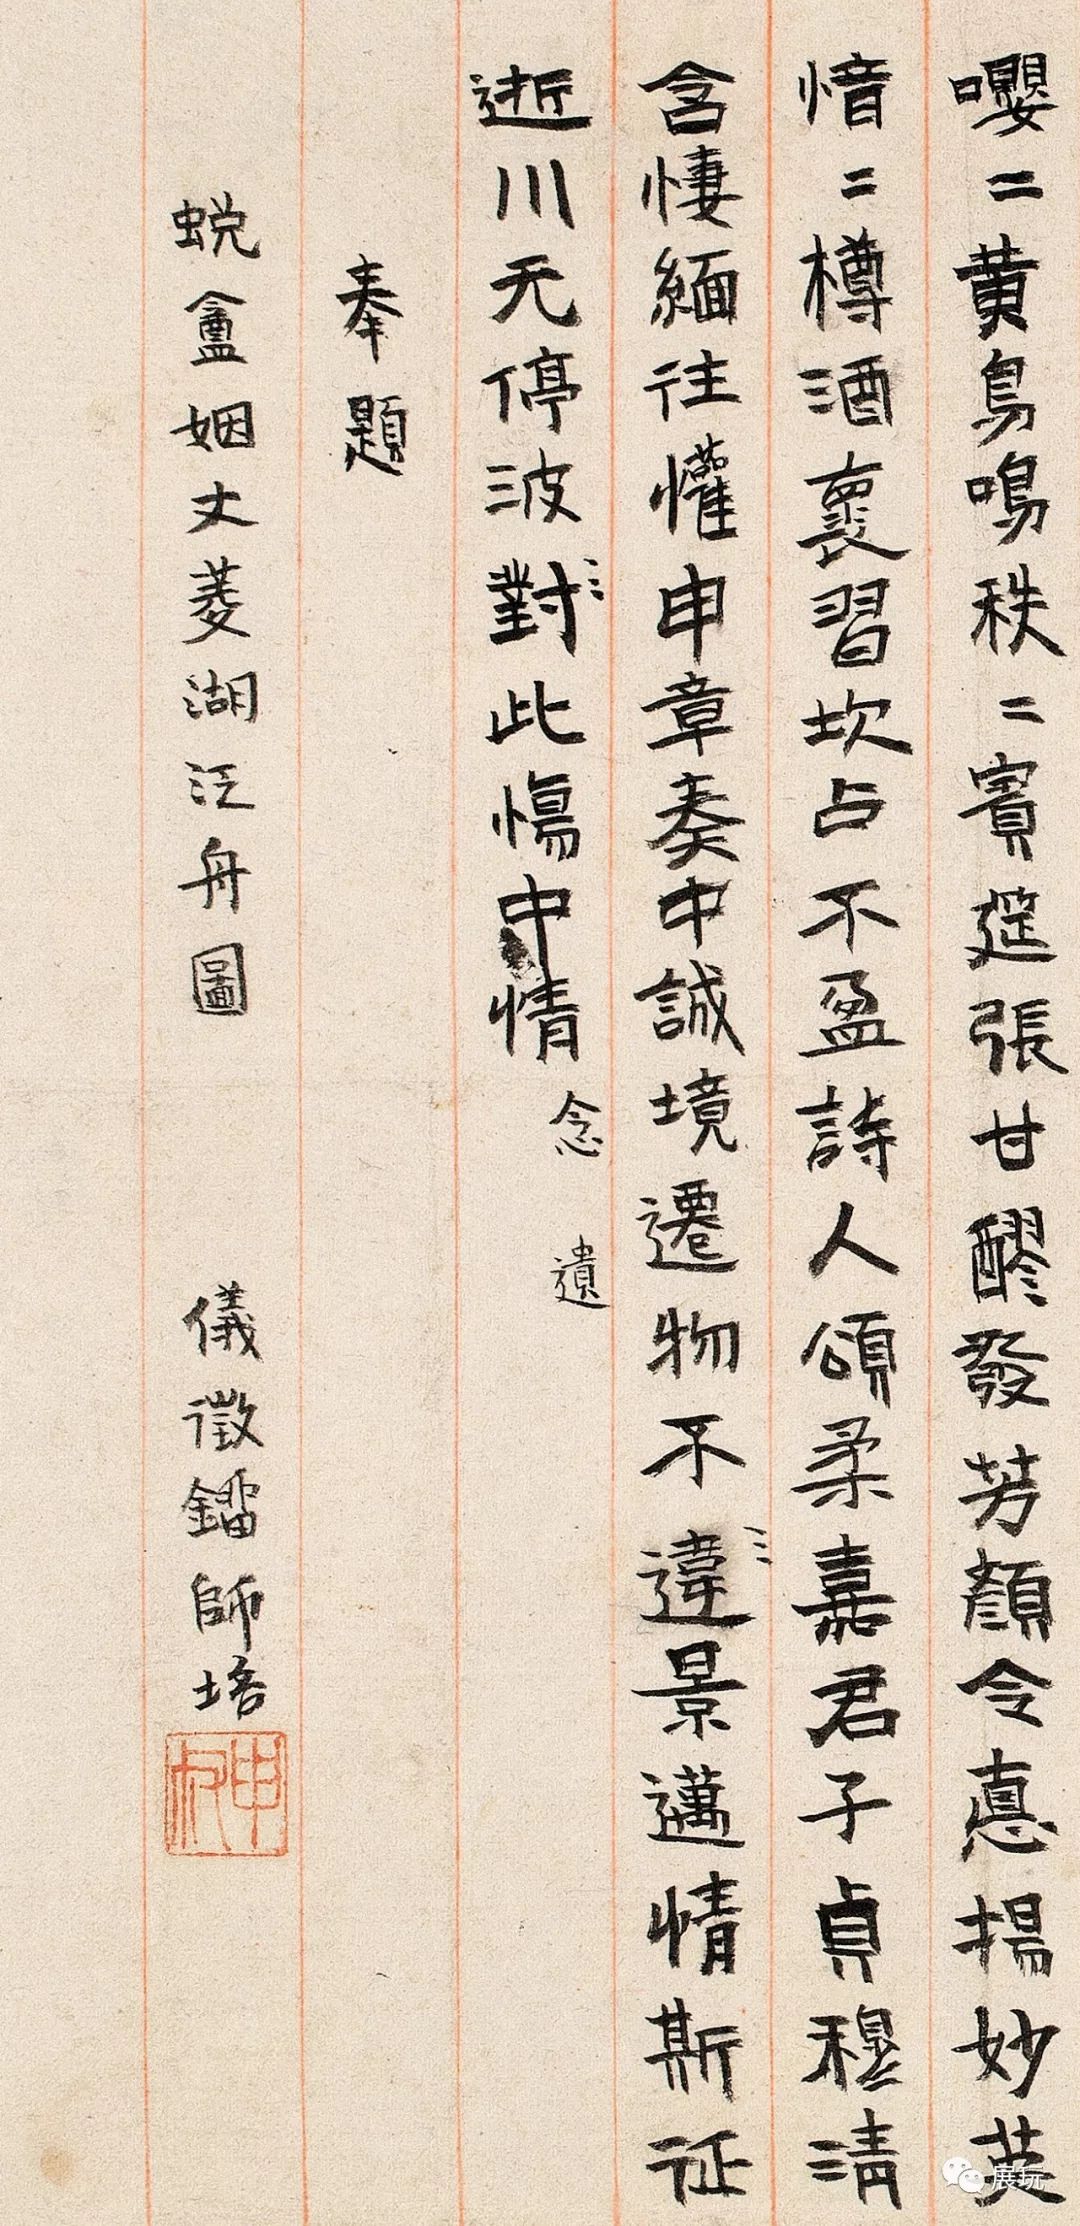 嚶〻黄鳥鳴秩〻賓筵張甘醪發芳顏令悳揚妙英
愔〻樽酒裏習坎占不盈詩人頌柔嘉君子貞穆清
含悽緬往懽申章奏中誠境遷物不違〻景邁情斯征
逝川无停波對〻此傷中情
念
遺
奉題
蛻盦姻丈菱湖泛舟圖
儀徵鐂師培
申叔
展玩